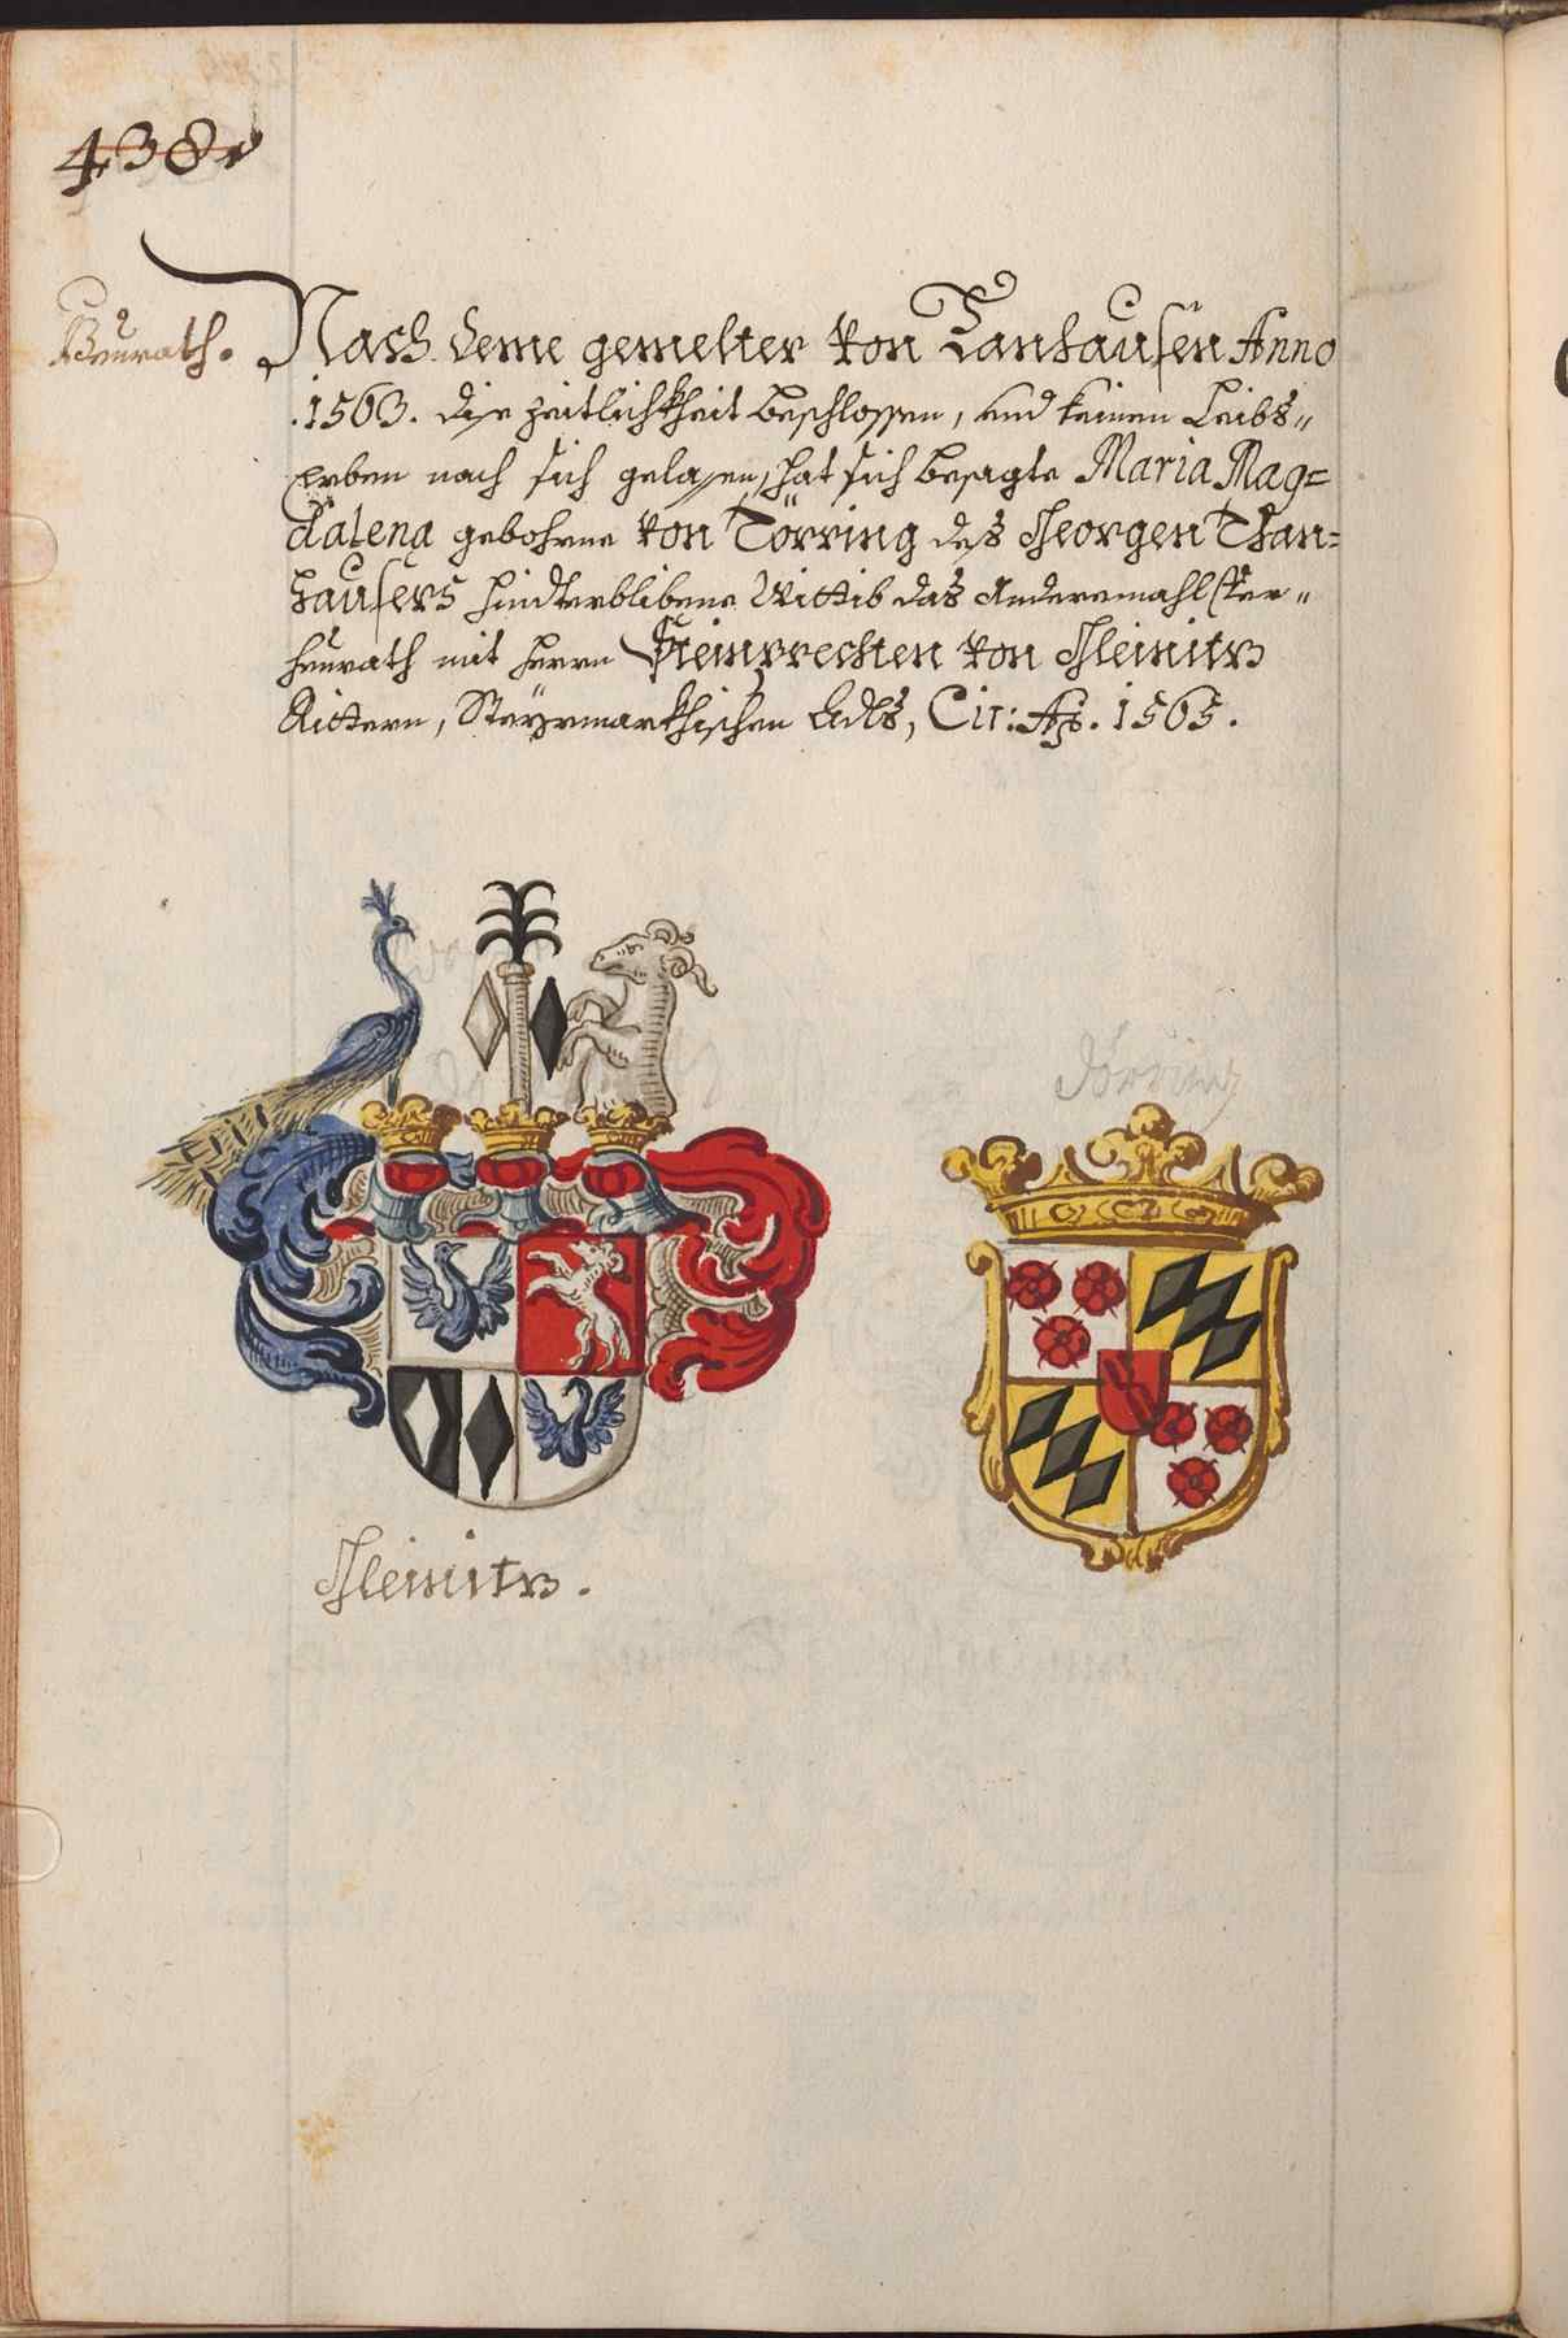 438
Heurath.
Nach deme gemelter von Tanhausen Anno
.1563. dise zeitlichkheit beschlossen, und keinen Leibs„
Erben nach sich gelassen, hat sich besagte Maria Mag=
dalena gebohrne von Törring des Georgen Than=
hausers hindterblibene Wittib das Anderemahl Ver„
heurath mit herrn von Gleinitz
Rittern, Steyrmarkhischen Adls, Cir: Ao. 1565.
Törring
Gleinitz.